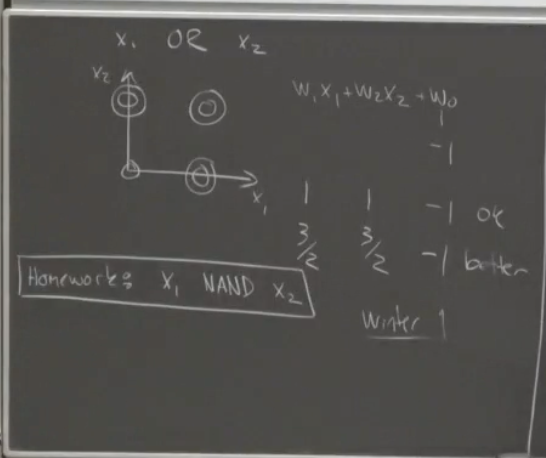 x₁ OR x₂
x₂
W₁x₁+W₂x₂+W₀
-1
x₁
1 1 -1 ok
3/2 3/2 -1 better
Homework: x₁ NAND x₂
Winter 1